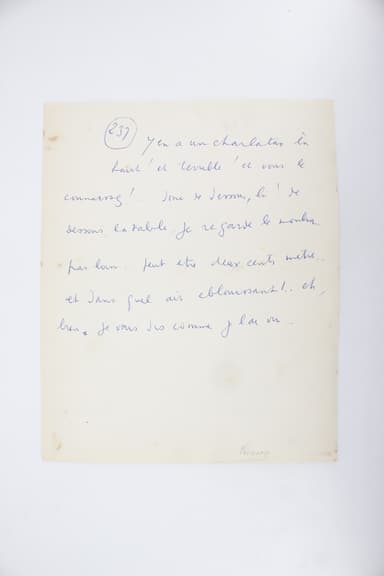 237
Y en a un charlatan là
haut ! et terrible ! et vous le
connaissez ! donc de dessous, là ! de
dessous la table je regarde le moulin
pas loin peut etre deux cents mètres..
et dans quel air eblouissant !.. eh,
bien, je vous dis comme j l'ai vu -